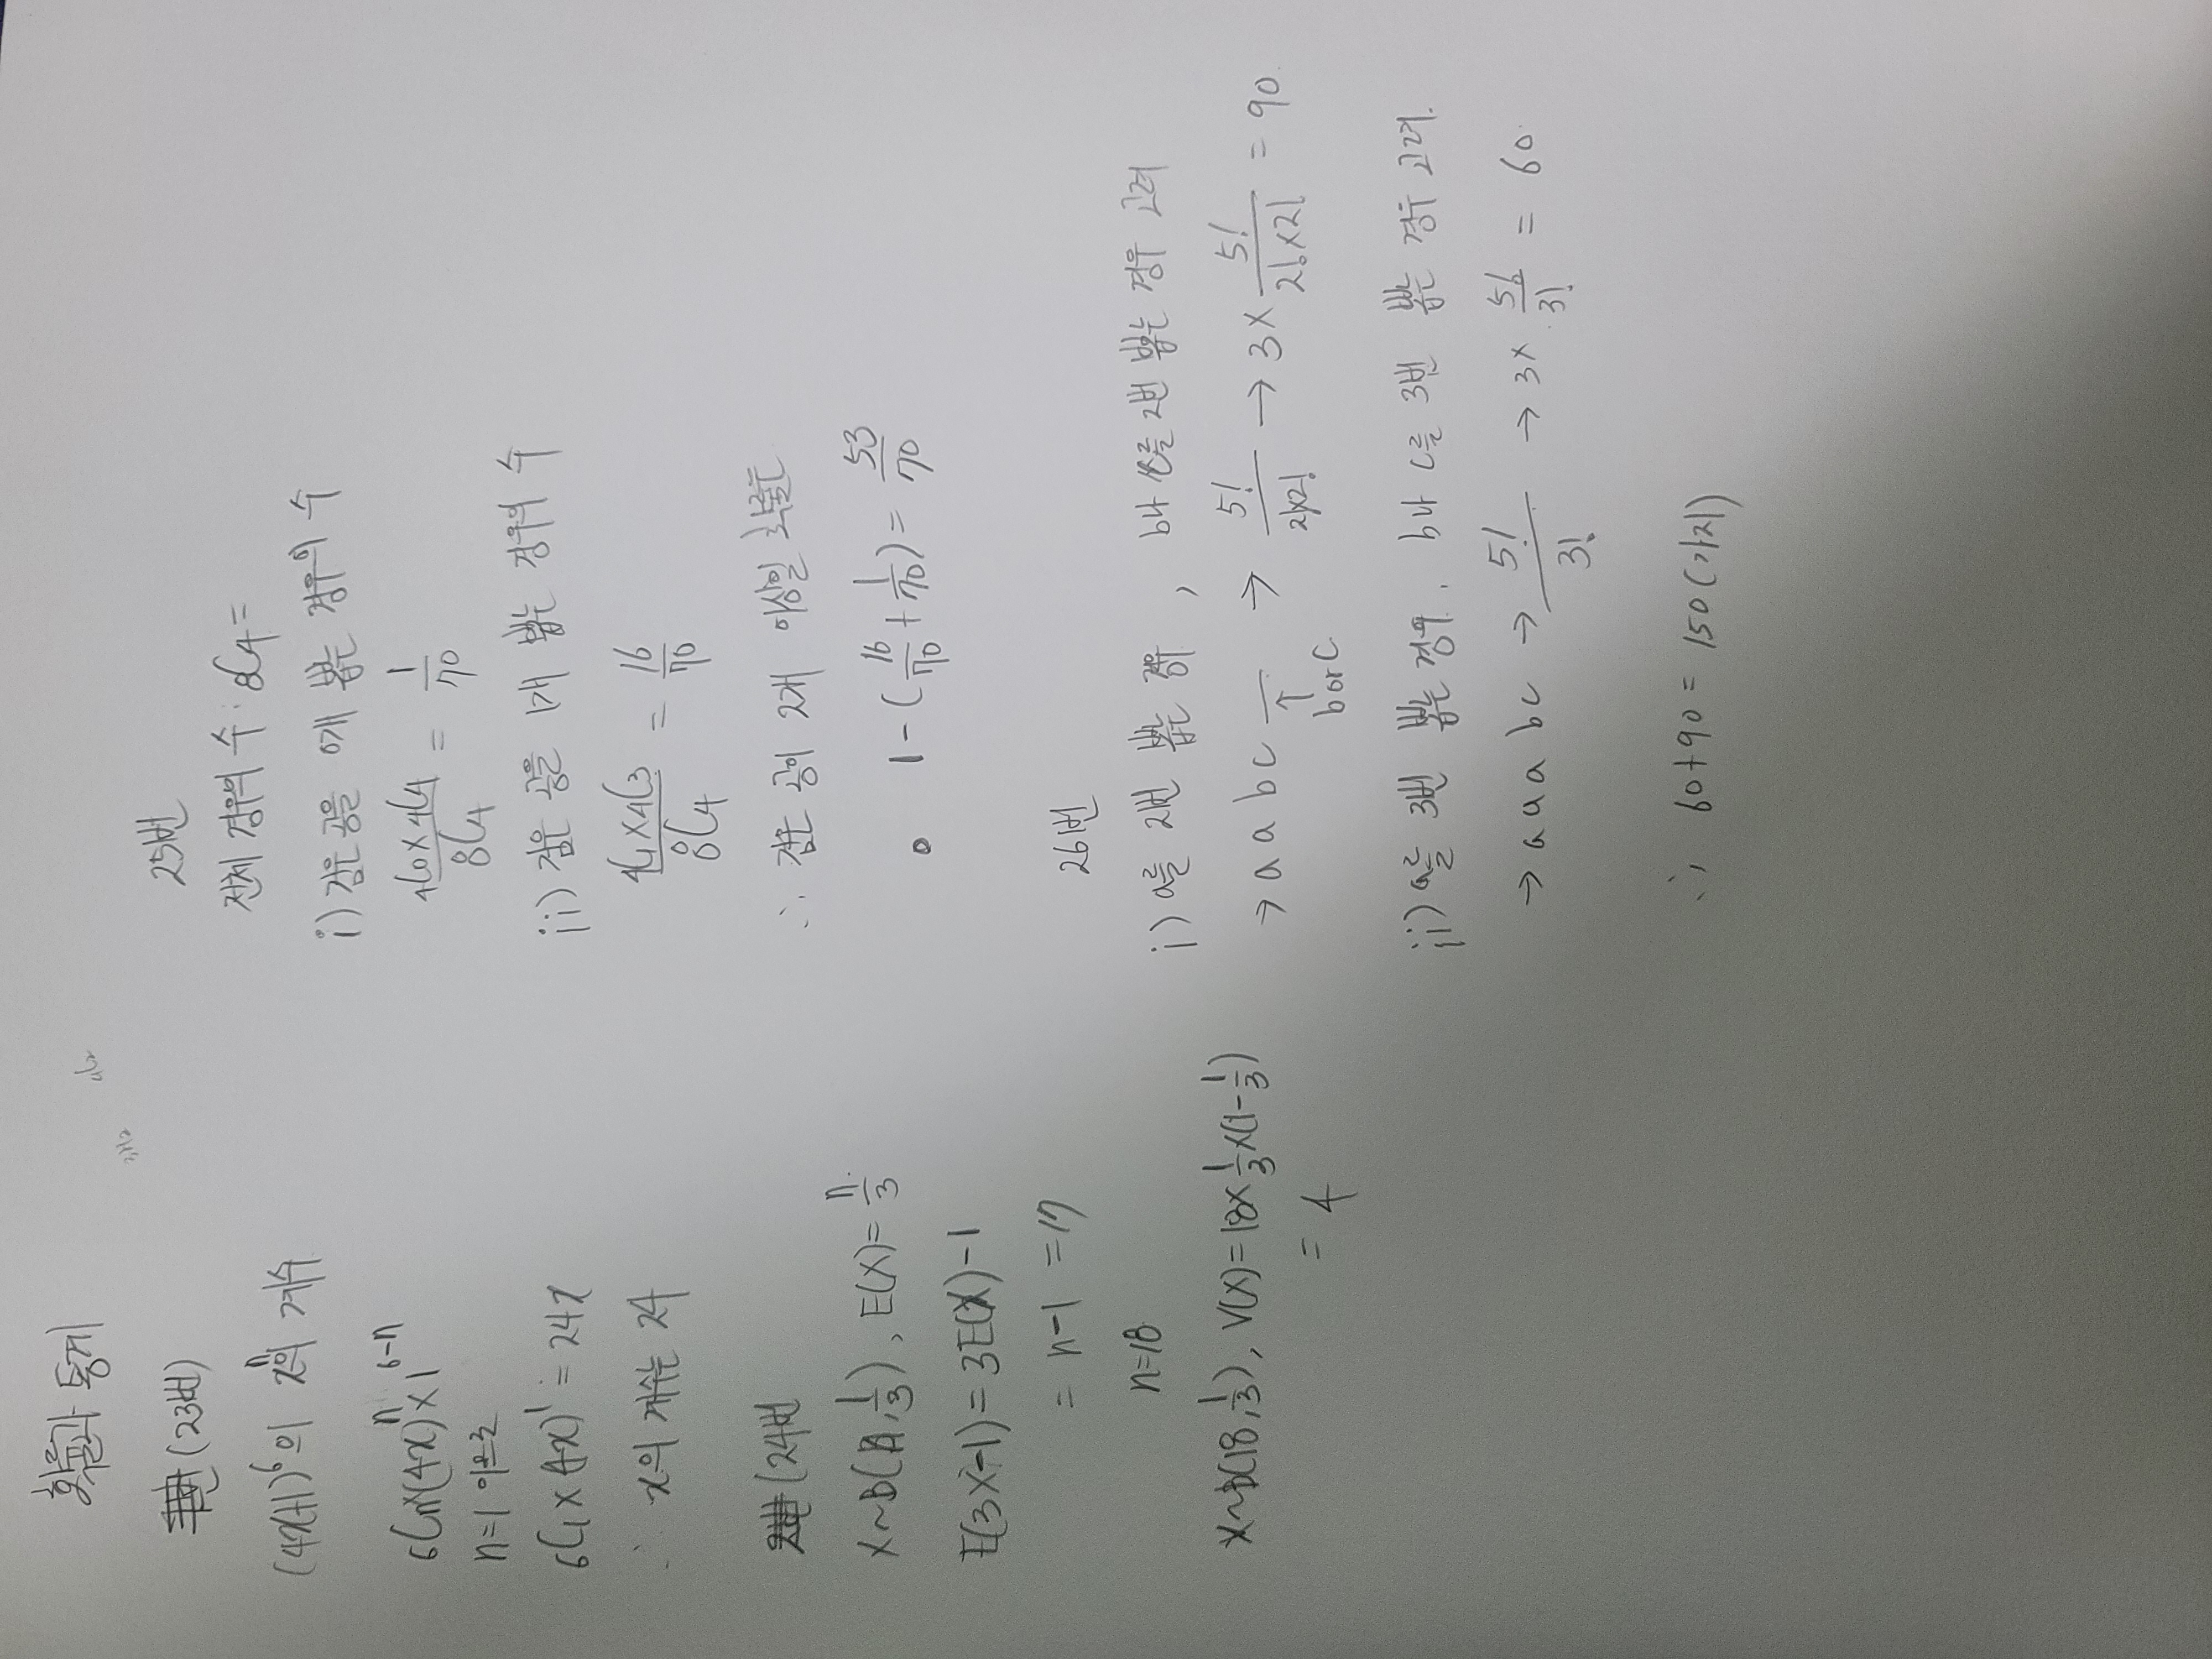 확률과 통계
₃H₂
₄C₂
(23번)
(4x+1)⁶의 xⁿ의 계수
₆Cₙ×(4x)ⁿ×1⁶⁻ⁿ
n=1 이므로
₆C₁×(4x)¹=24x
∴ x의 계수는 24
(24번
X~B(n,1/3), E(X)=n/3
E(3X-1)=3E(X)-1
= n-1 =17
n=18
X~B(18,1/3), V(X)=18×1/3×(1-1/3)
= 4
25번
전체 경우의 수: ₈C₄=
i) 검은 공을 0개 뽑는 경우의 수
₄C₀×₄C₄/₈C₄ = 1/70
ii) 검은 공을 1개 뽑는 경우의 수
₄C₁×₄C₃/₈C₄ = 16/70
∴ 검은 공이 2개 이상일 확률은
1-(16/70+1/70)=53/70
26번
i) a를 2번 뽑는 경우, b나 c를 2번 뽑는 경우 고려
→ a a b c _ → 5!/2!×2! → 3×5!/2!×2! = 90
↑
b or c
ii) a를 3번 뽑는 경우, b나 c를 3번 뽑는 경우 고려.
→ a a a b c → 5!/3! → 3×5!/3! = 60
∴ 60+90= 150(가지)